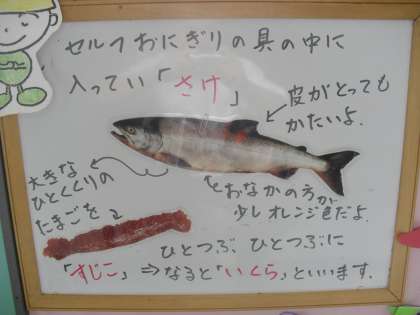 セルフおにぎりの具の中に
入ってい「さけ」
皮がとっても
かたいよ.
大きな
ひとくくりの
たまごを
おなかの方が
少しオレンジ色だよ.
ひとつぶ、ひとつぶに
「すじこ」⇒なると「いくら」といいます.